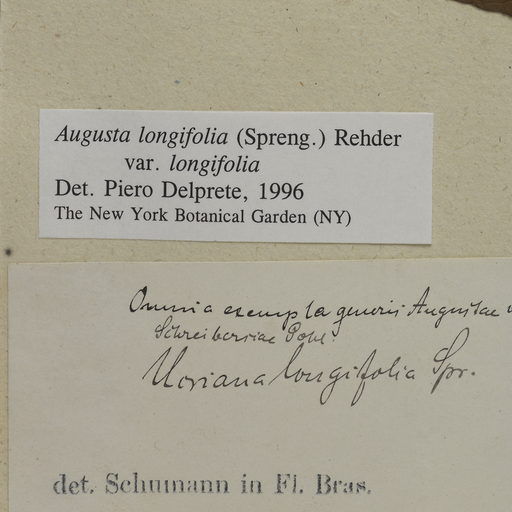 Augusta longifolia (Spreng.) Rehder
var. longifolia
Det. Piero Delprete, 1996
The New York Botanical Garden (NY)
Omnia exempla generis Augustae
Schreibersiae Pohl.
Ucriana longifolia Spr.
det. Schumann in Fl. Bras.